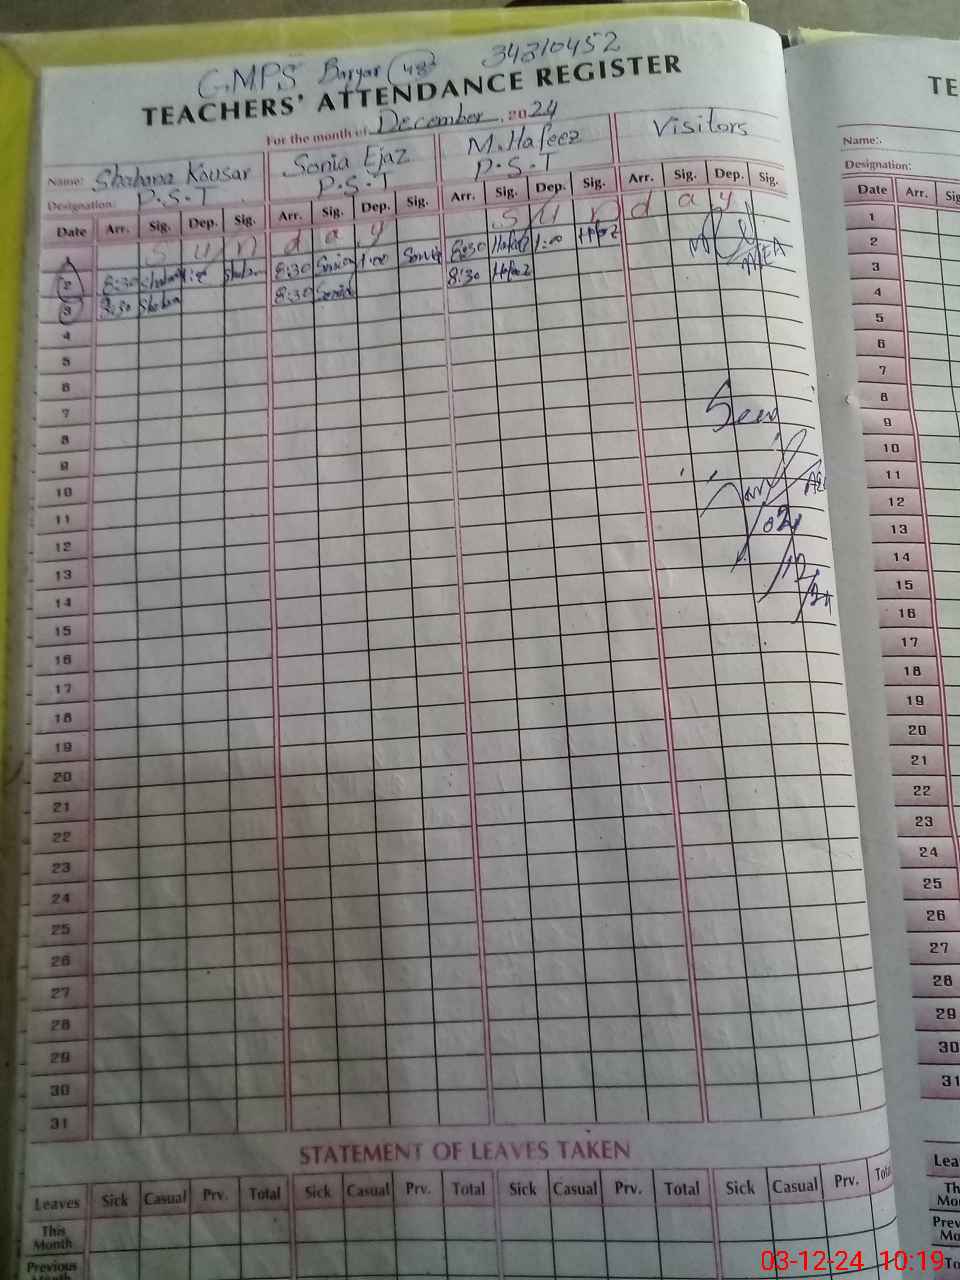 G.M.P.S Baryar 34310452
TEACHERS' ATTENDANCE REGISTER
For the month of December 2024
Name: Shabana Kousar Sonia Ejaz M.Hafeez Visitors
Designation: P.S.T P.S.T P.S.T
Date Arr. Sig. Dep. Sig. Arr. Sig. Dep. Sig. Arr. Sig. Dep. Sig. Arr. Sig. Dep. Sig.
S u n d a y S u n d a y
2 8:30 1:00 8:30 Sonia 1:00 Sonia 8:30 Hafeez 1:00 Hafeez AEA
3 8:30 8:30 Sonia 8:30 Hafeez
4
5
6
7
8 Seen
9
10
11
12
13
14
15
16
17
18
19
20
21
22
23
24
25
26
27
28
29
30
31
STATEMENT OF LEAVES TAKEN
Leaves Sick Casual Prv. Total Sick Casual Prv. Total Sick Casual Prv. Total Sick Casual Prv. Total
This
Month
Previous
Month
TE
Name:
Designation:
Date Arr. Sig
1
2
3
4
5
6
7
8
9
10
11
12
13
14
15
16
17
18
19
20
21
22
23
24
25
26
27
28
29
30
31
Lea
Th
Mo
Prev
Mo
To
03-12-24 10:19